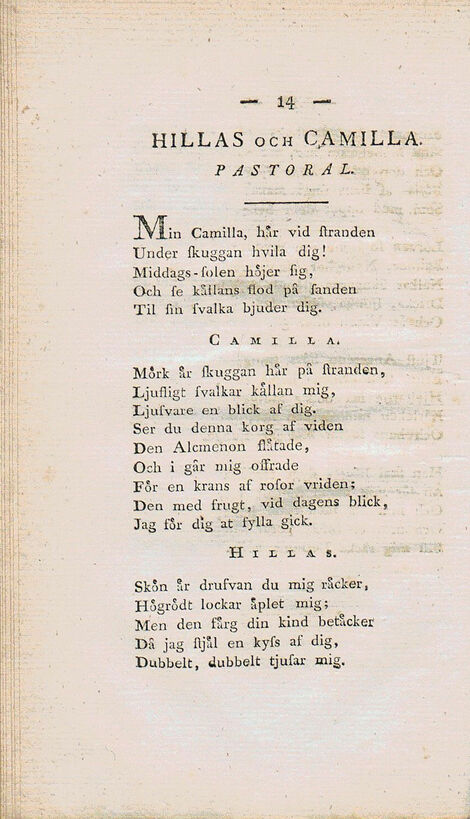 — 14 —
HILLAS OCH CAMILLA.
PASTORAL.
Min Camilla, hår vid ſtranden
Under ſkuggan hvila dig!
Middags-ſolen höjer ſig,
Och ſe kållans flod på ſanden
Til ſin ſvalka bjuder dig.
CAMILLA.
Mörk år ſkuggan hår på ſtranden,
Ljufligt ſvalkar kållan mig,
Ljufvare en blick af dig.
Ser du denna korg af viden
Den Alcmenon flåtade,
Och i går mig offrade
För en krans af roſor vriden;
Den med frugt, vid dagens blick,
Jag för dig at fylla gick.
HILLAS.
Skön år drufvan du mig råcker,
Högrödt lockar åplet mig;
Men den fårg din kind betåcker
Då jag ſtjål en kyſs af dig,
Dubbelt, dubbelt tjuſar mig.